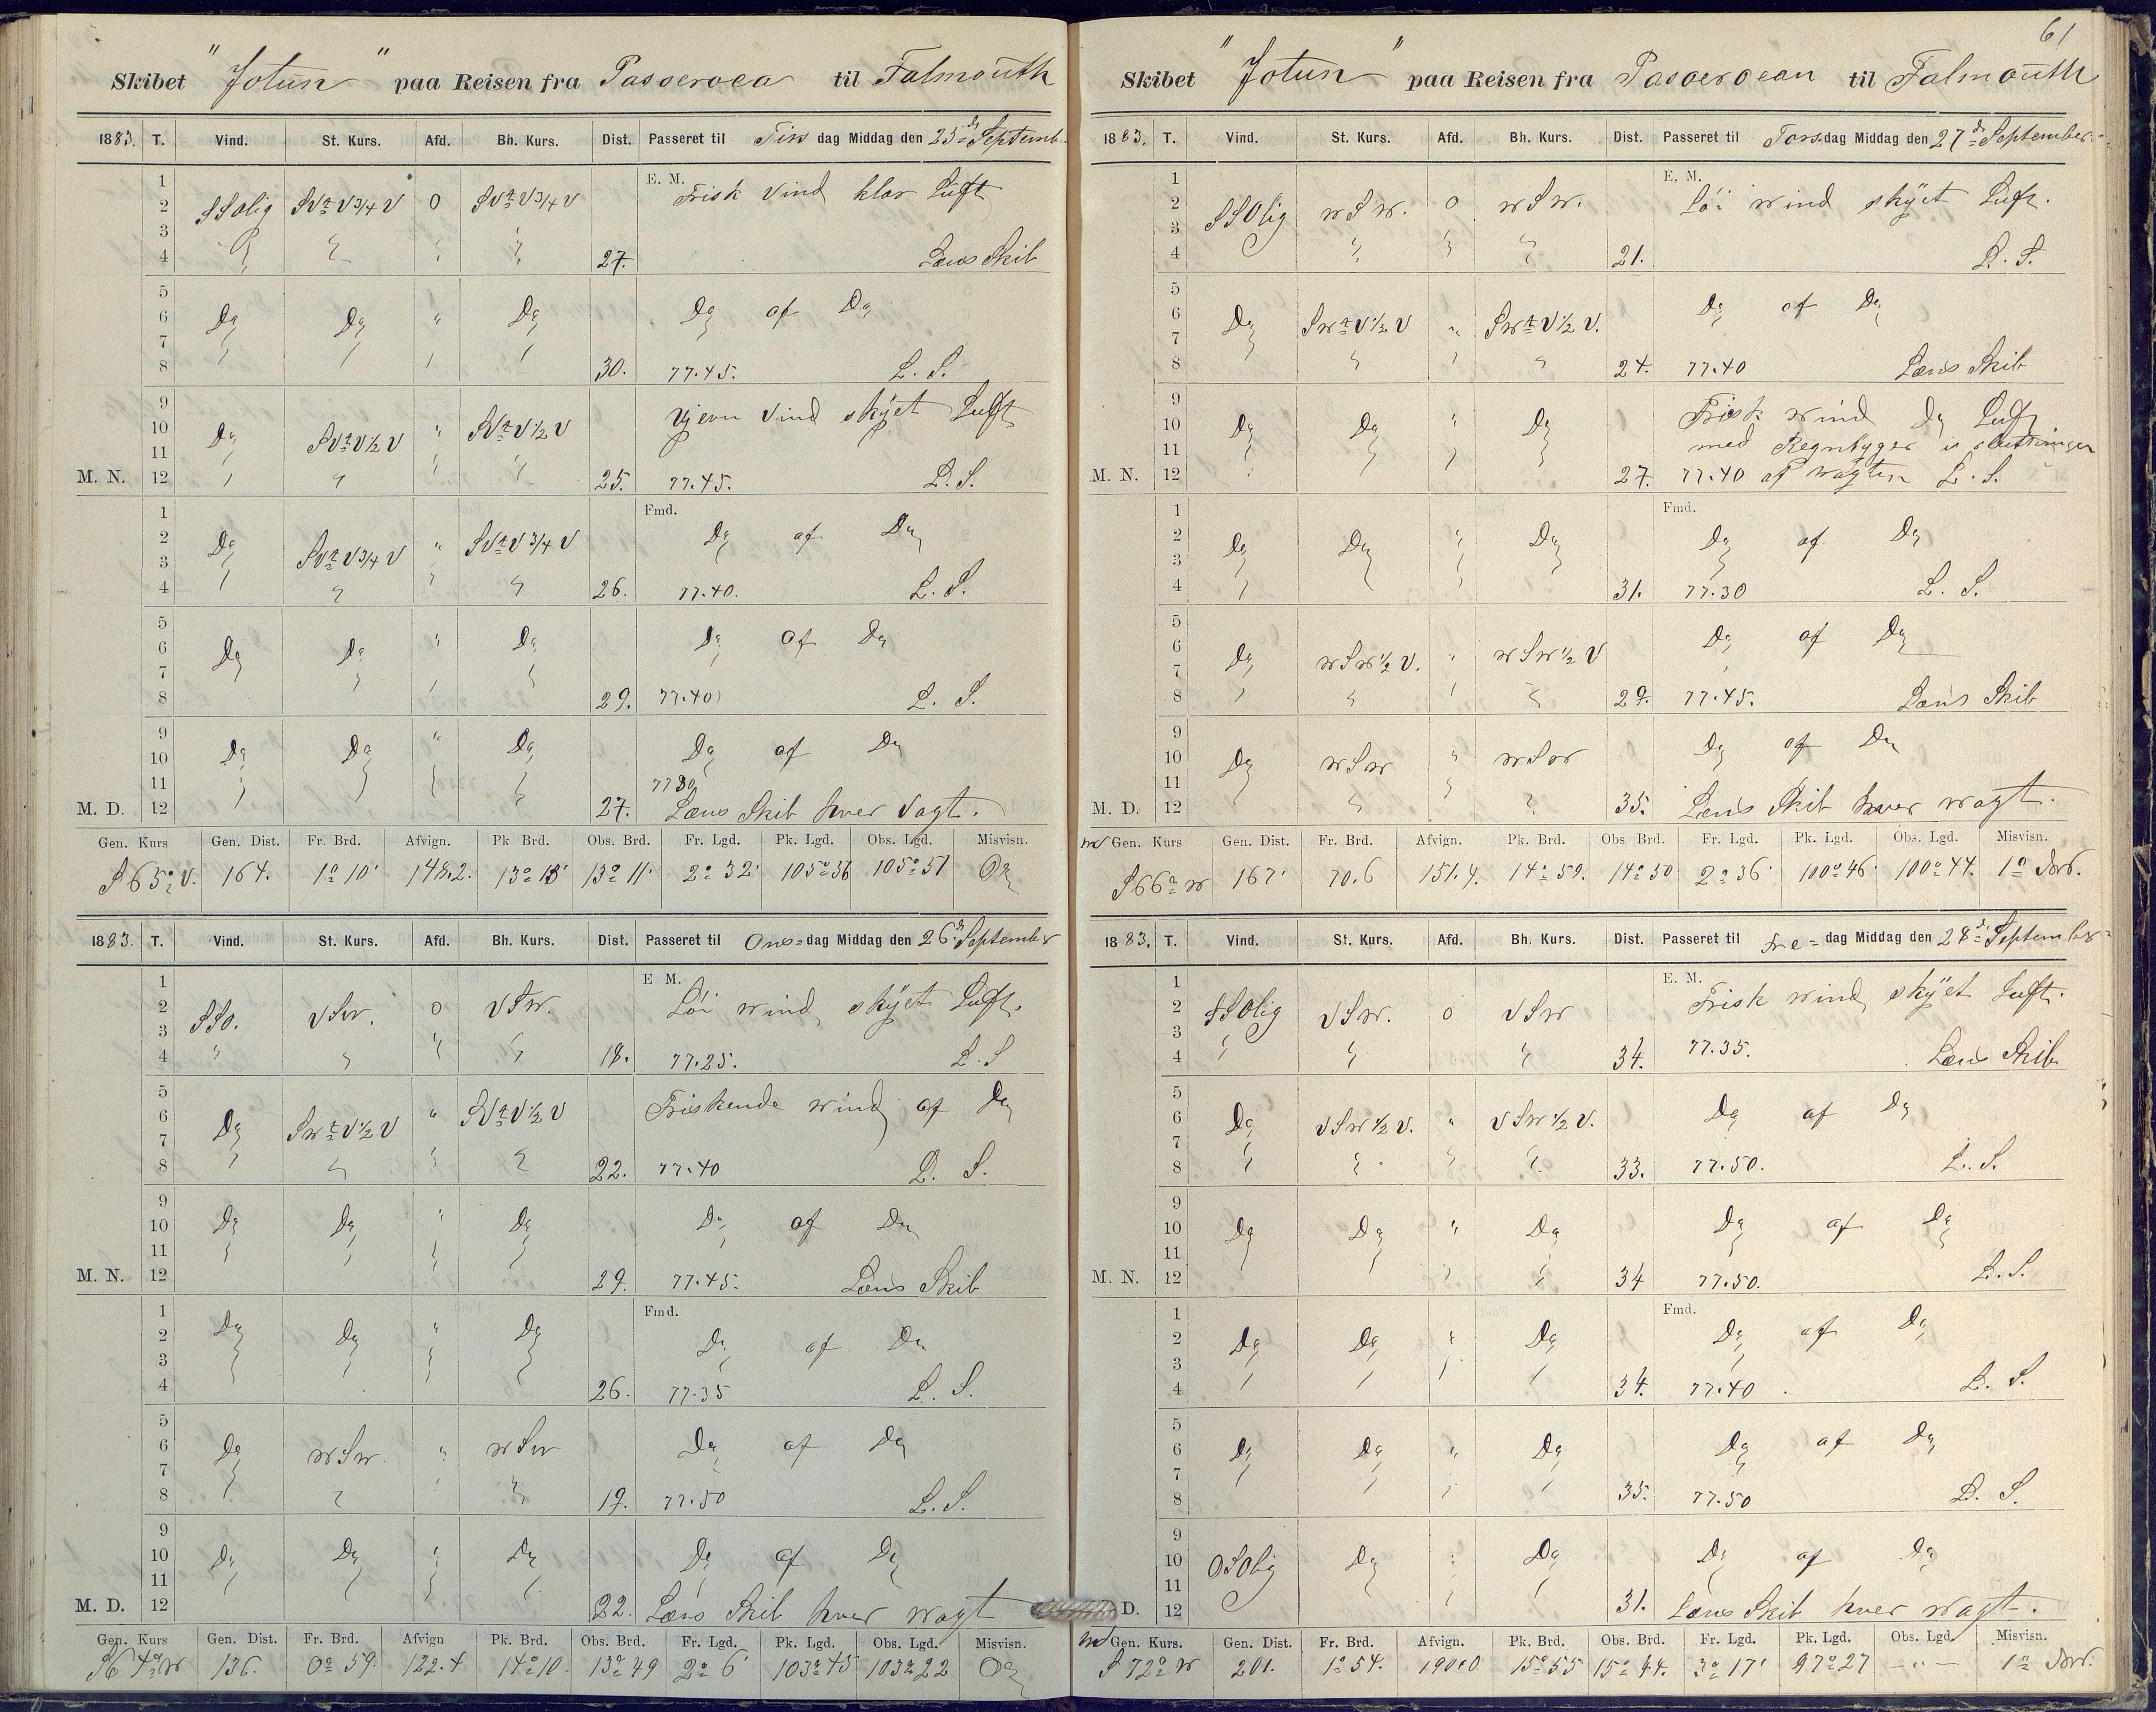 Skibet "Jotun" paa Reisen fra Passeroea til Falmouth
1883. T. Vind. St. Kurs. Afd. Bh. Kurs. Dist. Passeret til Tirs dag Middag den 25d September
E. M.
1 2 3 4 SSOlig SVtV3/4V 0 SVtV3/4V 27. Frisk Vind klar Luft
Læns Skib
5 6 7 8 Do Do " Do 30. Do af Do
77.45. L. S.
9 10 11 M. N. 12 Do SVtV1/2V " SVtV1/2V 25. Vjevn Vind skyet Luft
77.45. L. S.
Fmd.
1 2 3 4 Do SVtV3/4V " SVtV3/4V 26. Do af Do
77.40. L. S.
5 6 7 8 Do Do " Do 29. Do af Do
77.40 L. S.
9 10 11 M. D. 12 Do Do " Do 27. Do af Do
7730
Læns Skib hver Vagt.
Gen. Kurs Gen. Dist. Fr. Brd. Afvign. Pk Brd. Obs. Brd. Fr. Lgd. Pk. Lgd. Obs. Lgd. Misvisn.
S 65° V. 164. 1° 10' 148,2. 13° 13' 13° 11' 2° 32' 105° 36 105° 51 0°
1883. T. Vind. St. Kurs. Afd. Bh. Kurs. Dist. Passeret til Ons= dag Middag den 26d September
E M.
1 2 3 4 SSO. VSw. 0 VSw. 18. Löi wind skyet Luft.
77.25. L. S
5 6 7 8 Do SwtV1/2V " SVtV1/2V 22. Friskende wind af Do
77.40 L. S.
9 10 11 M. N. 12 Do Do " Do 29. Do af Do
77.45. Læns Skib
Fmd.
1 2 3 4 Do Do " Do 26. Do af Do
77.35 L. S.
5 6 7 8 Do wSw. " wSw 19. Do af Do
77.50 L. S.
9 10 11 M. D. 12 Do Do " Do 22. Do af Do
Læns Skib hver wagt
Gen. Kurs Gen. Dist. Fr. Brd. Afvign Pk. Brd. Obs. Brd. Fr. Lgd. Pk. Lgd. Obs. Lgd. Misvisn.
S64°w 136. 0° 59. 122.4 14° 10. 13° 49 2° 6' 103° 45 103° 22 0°
61
Skibet "Jotun" paa Reisen fra Passeroean til Falmouth
1883. T. Vind. St. Kurs. Afd. Bh. Kurs. Dist. Passeret til Tors dag Middag den 27d September
E. M.
1 2 3 4 SSOlig wSw. 0 wSw. 21. Löi wind skyet Luft.
L. S.
5 6 7 8 Do SwtV1/2V " SwtV1/2V. 24. Do af Do
77.40 Læns Skib
9 10 11 M. N. 12 Do Do " Do 27. Frisk wind Do Luft
med Regnbyger i slutningen
77.40 af wagten L. S.
Fmd.
1 2 3 4 Do Do " Do 31. Do af Do
77.30 L. S.
5 6 7 8 Do wSw1/2V. " wSw1/2V 29. Do af Do
77.45. Læns Skib
9 10 11 M. D. 12 Do wSw " wSw 35. Do af Do
Læns Skib hver wagt.
Gen. Kurs Gen. Dist. Fr. Brd. Afvign. Pk. Brd. Obs Brd. Fr. Lgd. Pk. Lgd. Obs. Lgd. Misvisn.
S66°w 167' 70.6 151.4. 14° 59. 14° 50 2° 36' 100° 46' 100° 44. 1°
1883. T. Vind. St. Kurs. Afd. Bh. Kurs. Dist. Passeret til Fre= dag Middag den 28d September
E. M.
1 2 3 4 SSOlig VSw. 0 VSw 34. Frisk wind skyet Luft.
77.35. Læns Skib
5 6 7 8 Do VSw1/2V. " VSw1/2V. 33. Do af Do
77.50. L. S.
9 10 11 M. N. 12 Do Do " Do 34 Do af Do
77.50. L. S.
Fmd.
1 2 3 4 Do Do " Do 34. Do af Do
77.40 L. S.
5 6 7 8 Do Do " Do 35. Do af Do
77.50 L. S.
9 10 11 D. 12 OSOlig Do " Do 31. Do af Do
Læns Skib hver wagt.
Gen. Kurs. Gen. Dist. Fr. Brd. Afvign. Pk. Brd. Obs. Brd. Fr. Lgd. Pk. Lgd. Obs. Lgd. Misvisn.
S72°w 201. 1° 54. 190.0 15° 55 15° 44. 3° 17' 97° 27 —"— 1°